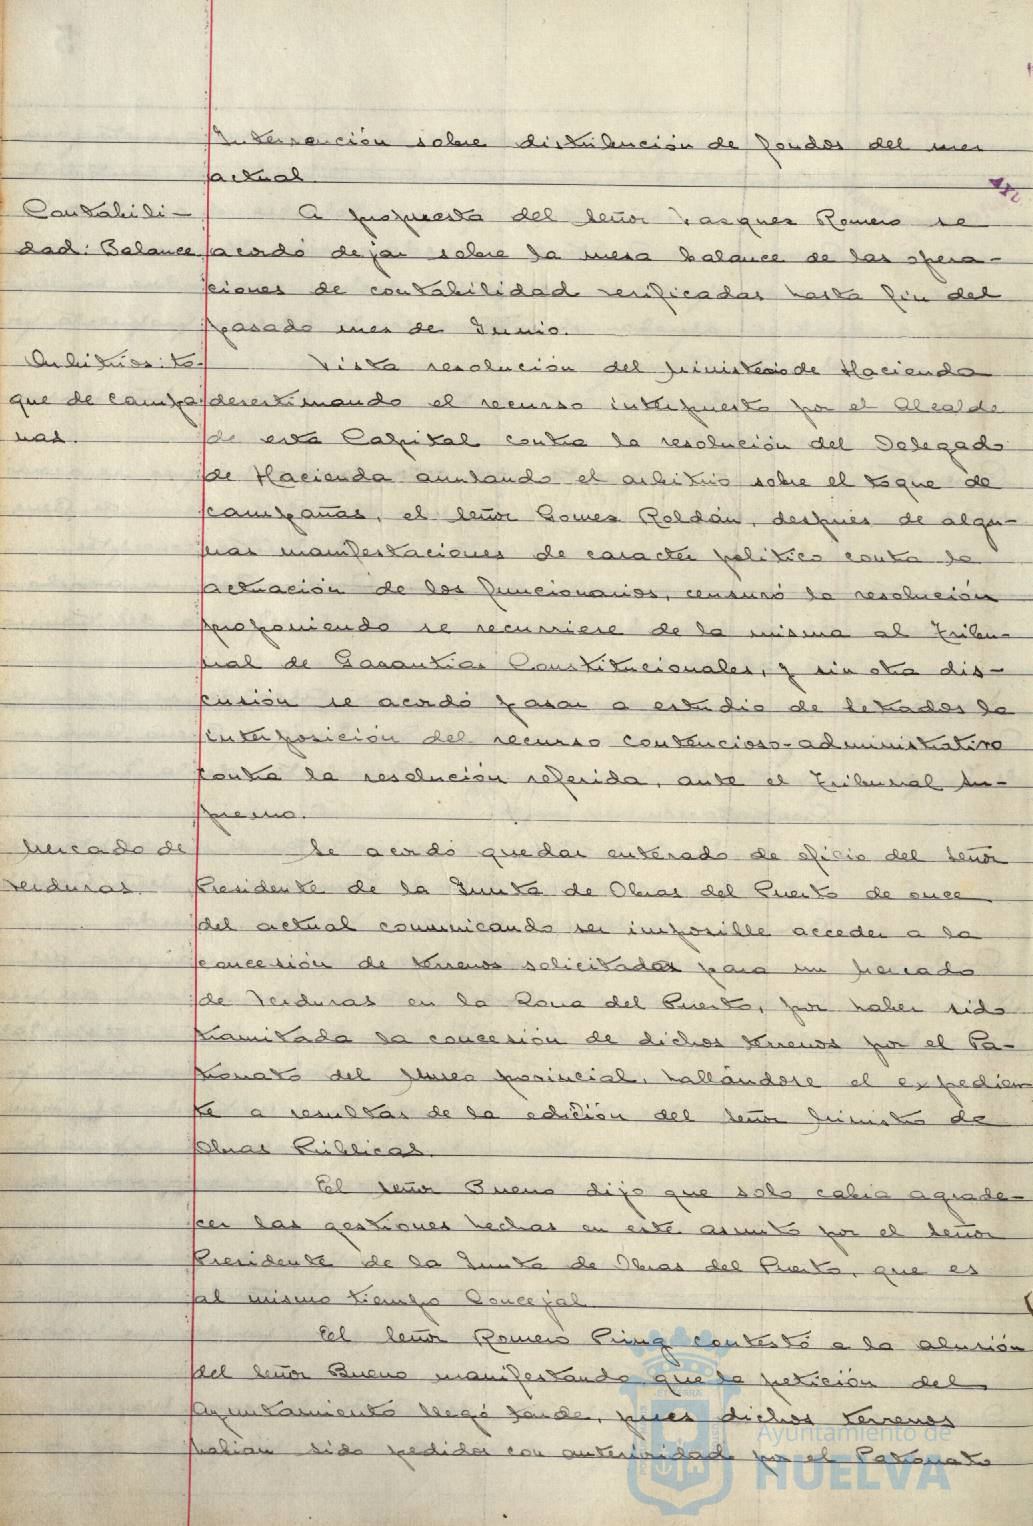 Intervención sobre distribución de fondos del mes
actual.
Contabili-
dad: Balance
A propuesta del Señor Vasques Romero se
acordó dejar sobre la mesa balance de las opera-
ciones de contabilidad verificadas hasta fin del
pasado mes de Junio.
Arbitrios: to-
que de campa-
nas.
Vista resolución del Ministerio de Hacienda
desestimando el recurso interpuesto por el Alcalde
de esta Capital contra la resolución del Delegado
de Hacienda anulando el arbitrio sobre el toque de
campañas, el Señor Gomes Roldán, después de algu-
nas manifestaciones de caracter politico contra la
actuación de los funcionarios, censuró la resolución
proponiendo se recurriese de la misma al Tribu-
nal de Garantias Constitucionales, y sin otra dis-
cusión se acordó pasar a estudio de Letrados la
interposición del recurso contencioso-administrativo
contra la resolución referida, ante el Tribunal Su-
premo.
Mercado de
Verduras.
Se acordó quedar enterado de oficio del Señor
Presidente de la Junta de Obras del Puerto de once
del actual comunicando ser imposible acceder a la
concesión de terrenos solicitados para un Mercado
de Verduras en la Zona del Puerto, por haber sido
tramitada la concesión de dichos terrenos por el Pa-
tronato del Museo provincial, hallándose el expedien
te a resultas de la edición del Señor Ministro de
Obras Públicas.
El Señor Bueno dijo que solo cabia agrade-
cer las gestiones hechas en este asunto por el Señor
Presidente de la Junta de Obras del Puerto, que es
al mismo tiempo Concejal.
El Señor Romero Puig contestó a la alusión
del Señor Bueno manifestando que la petición del
Ayuntamiento llegó tarde, pues dichos terrenos
habian sido pedidos con anterioridad por el Patronato
Ayuntamiento de
HUELVA